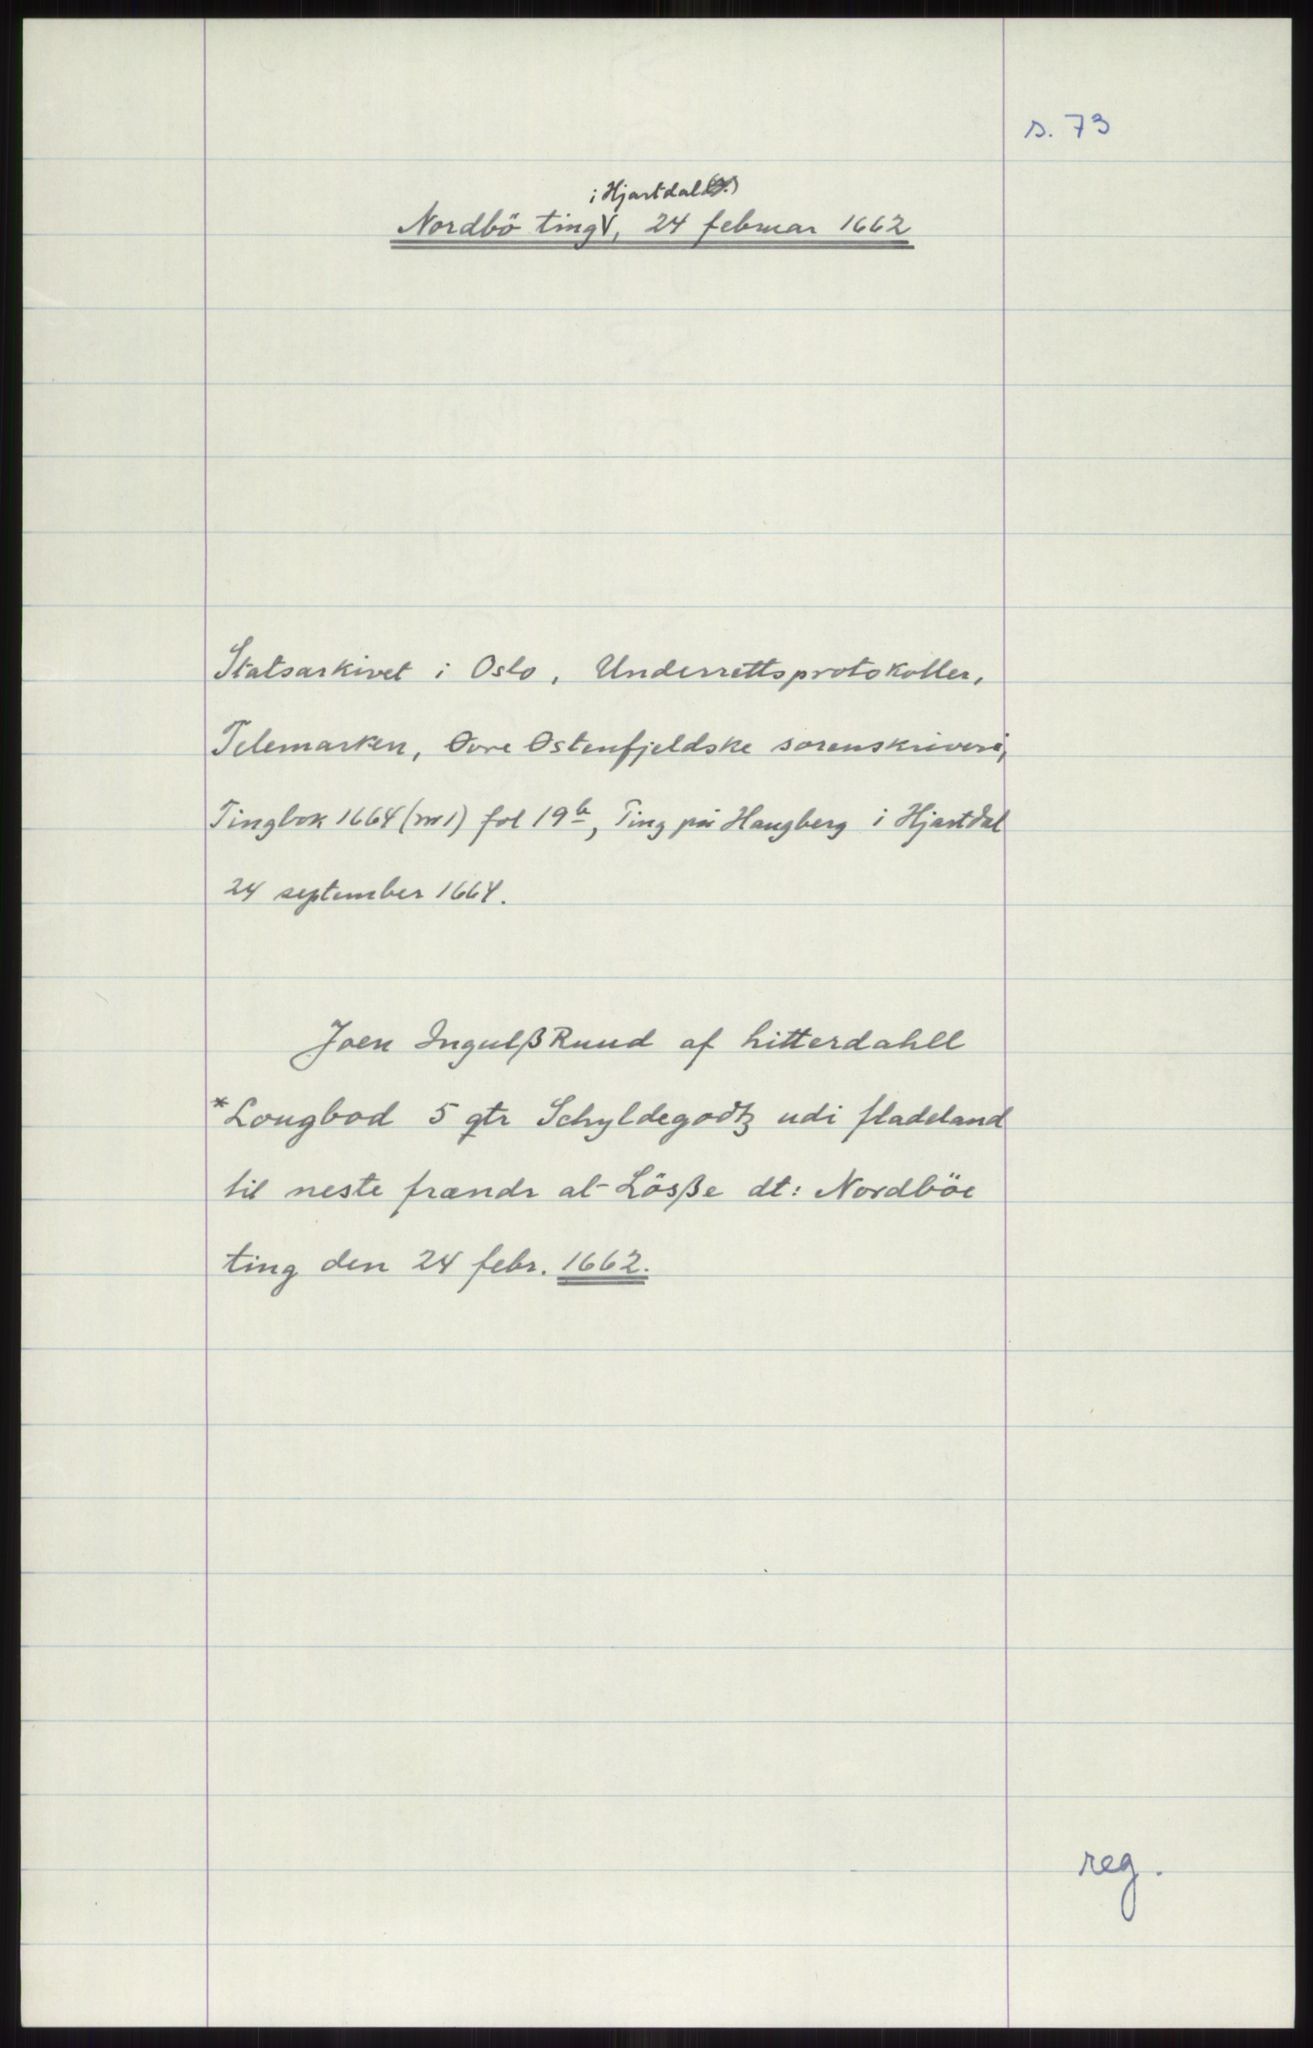 s. 73
i Hjartdal
Nordbö ting V, 24 februar 1662
Statsarkivet i Oslo, Underrettsprotokoller,
Telemarken, Øvre Østenfjeldske sorenskriveri,
Tingbok 1664 (nr 1) fol 19b, Ting på Haugberg i Hjartdal
24 september 1664.
Joen Ingulß Ruud af hitterdahll
*Lougbød 5 qtr Schyldegodtz udi fladeland
til neste frændr at Lösße dt: Nordböe
ting den 24 febr. 1662.
reg.